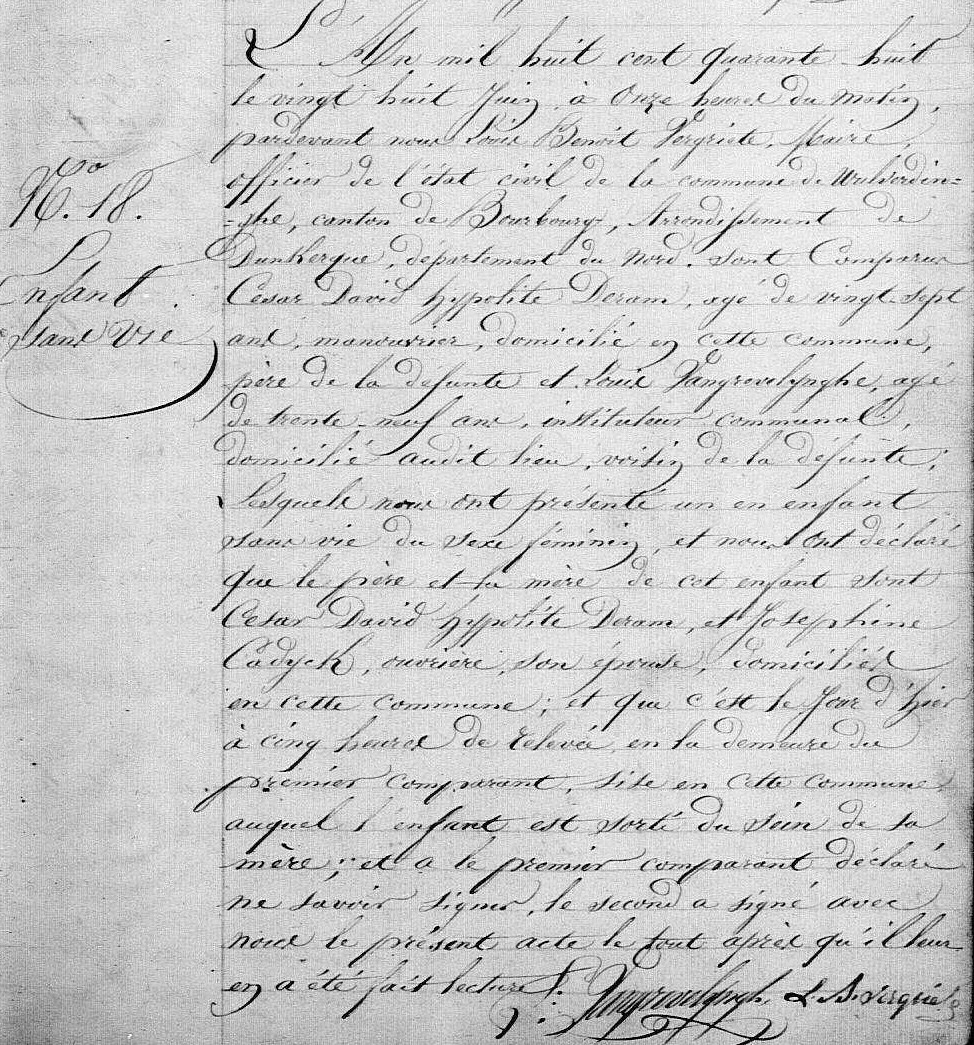 L'An mil huit cent quarante-huit
le vingt huit Juin à Onze heures du Matin,
pardevant nous Louis Benoit Vergriete, Maire,
officier de l'état civil de la commune de Wulverdin=
=ghe, canton de Bourbourg, Arrondissement de
Dunkerque, département du Nord. sont Comparus
Cesar David Hyppolite Deram, agé de vingt-sept
ans, manouvrier, domicilié en cette commune,
père de la defunte et Louis Vangrevelynghe, agé
de trente-neuf ans, instituteur communal,
domicilié audit lieu, voisin de la défunte;
Lesquels nous ont présenté un en enfant
sans vie du sexe féminin, et nous Ont déclaré
que le père et la mère de cet enfant sont
Cesar David Hyppolite Deram, et Josephine
Cadyck, ouvrière, son épouse, domiciliés
en cette commune; et que c'est le Jour d'hier
à cinq heures de relevée, en la demeure du
premier comparant, sise en cette commune,
auquel l'enfant est sorti du sein de sa
mère; et a le premier comparant déclaré
ne savoir signer, le second a signé avec
nous le présent acte le tout après qu'il leur
en a été fait lecture.
Vangrevelyngh. L. B. Vergriete
No. 18.
Enfant
sans Vie